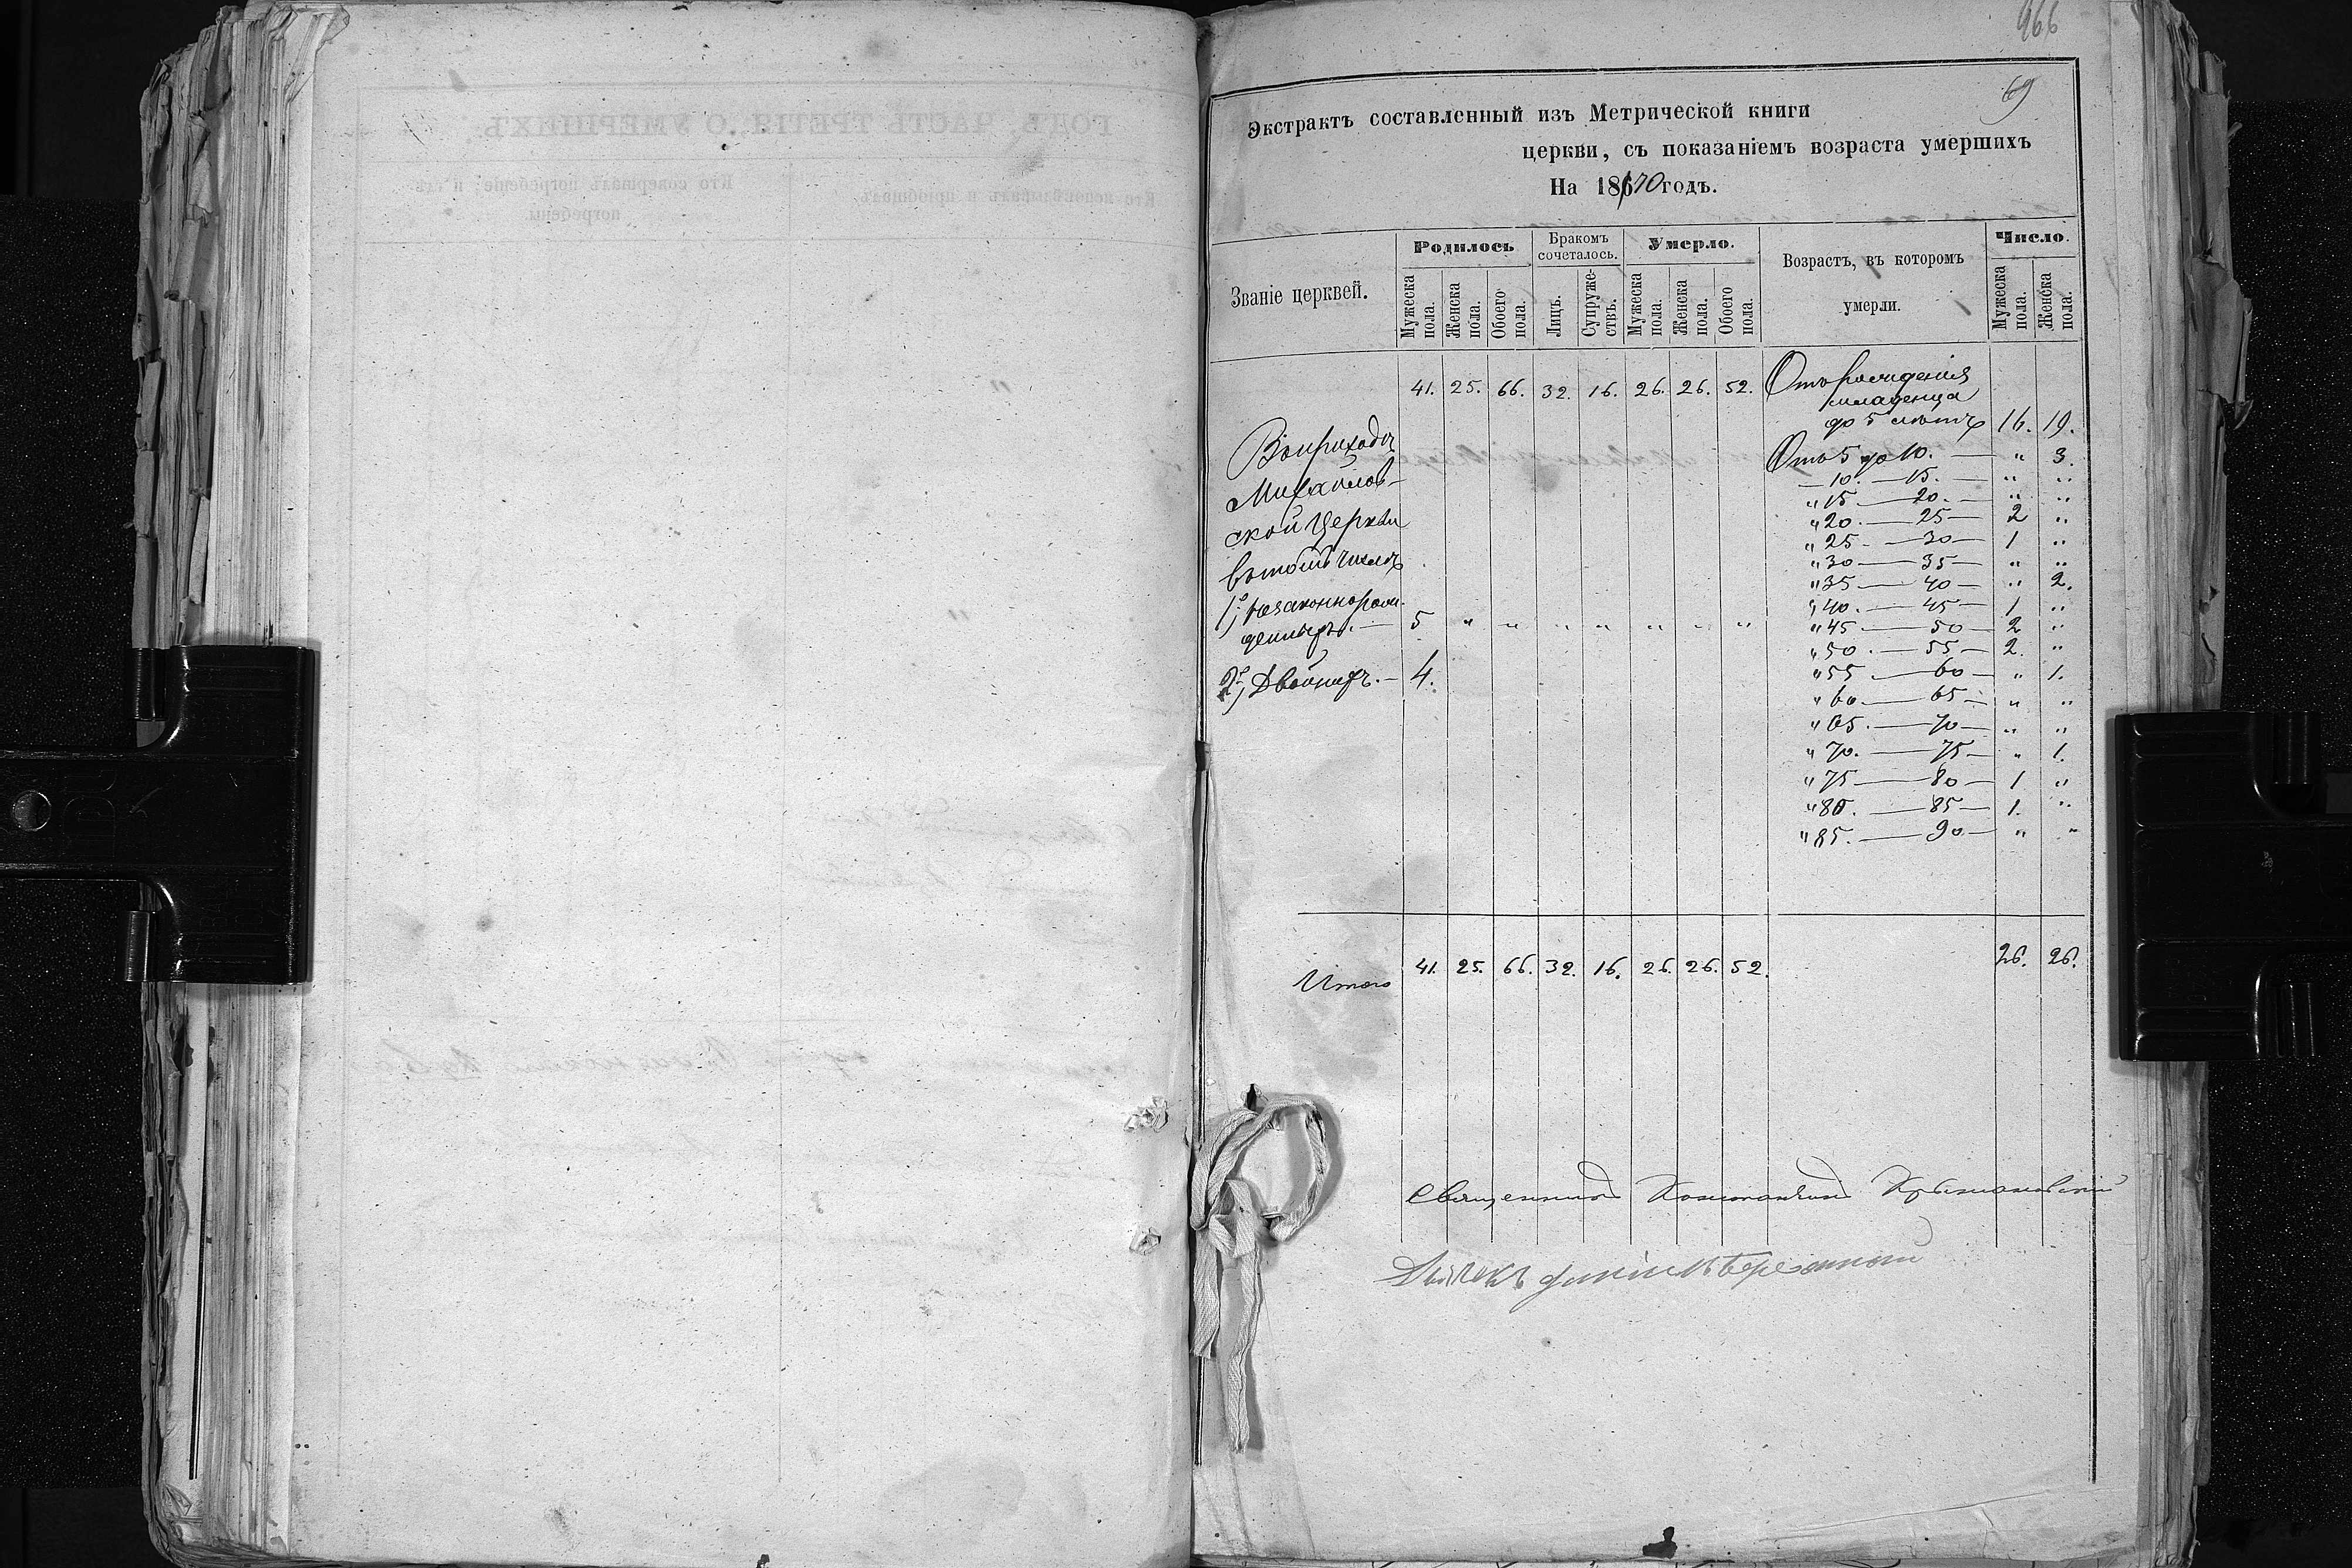 966
69
Экстрактъ составленный изъ Метрической книги
церкви, съ показаніемъ возраста умершихъ
На 1870 годъ.
Званіе церквей.
Родилось
Бракомъ сочеталось.
Умерло.
Возрастъ, въ которомъ умерли.
Число.
Мужеска пола.
Женска пола.
Обоего пола.
Лицъ.
Супружествъ.
Мужеска пола.
Женска пола.
Обоего пола.
Мужеска пола.
Женска пола.
41. 25. 66. 32. 16. 26. 26. 52. Отъ рожденія
младенца
до 5 лѣтъ 16. 19.
Вприходѣ
Михайлов-
ской Церкви
въ томъ числѣ
1е, незаконнорож-
денныхъ. — 5 " " " " " " "
2е, Двойнихъ. — 4.
Отъ 5 до 10. — " 3.
— 10. — 15. — " "
" 15 — 20. — " "
" 20. — 25 — 2 "
" 25 — 30 — 1 "
" 30 — 35 — " "
" 35 — 40 — " 2.
" 40. — 45 — 1 "
" 45 — 50 — 2 "
" 50. — 55 — 2. "
" 55 — 60 — " 1.
" 60 — 65 — " "
" 65. — 70 — " "
" 70. — 75 — " 1.
" 75 — 80 — 1 "
" 80. — 85 — 1. "
" 85. — 90 — " "
Итого 41. 25. 66. 32. 16. 26. 26. 52. 26. 26.
Священникъ Константинъ Крыжановскій